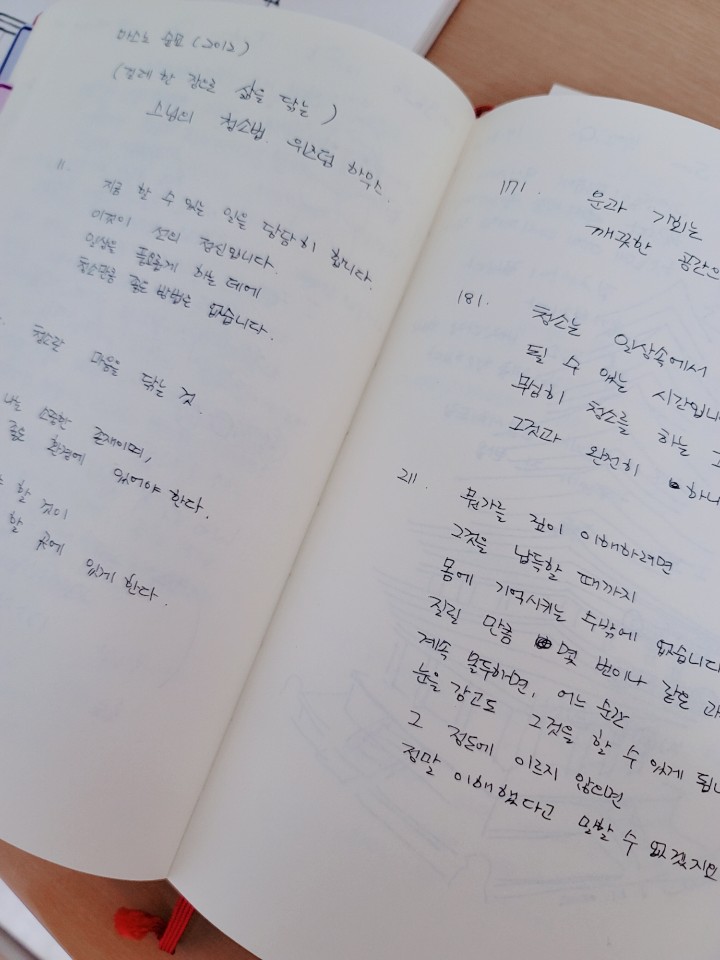 마스노 슌묘 (2012)
(걸레 한 장으로 삶을 닦는)
스님의 청소법. 위즈덤 하우스.
11.
지금 할 수 있는 일을 당당히 합니다.
이것이 선의 정신입니다.
일상을 풍요롭게 하는 데에
청소만큼 좋은 방법은 없습니다.
청소란 마음을 닦는 것.
나는 소중한 존재이며,
좋은 환경에 있어야 한다.
할 것이
할 곳에
있게 한다.
171.
운과 기회는
깨끗한 공간으
181.
청소는 일상속에서
될 수 있는 시간입니
무심히 청소를 하는
그것과 완전히 하나
211.
뭔가를 깊이 이해하려면
그것을 납득할 때까지
몸에 기억시키는 수밖에 없습니다
질릴 만큼 몇 번이나 같은 과
계속 몰두하면, 어느 순간
눈을 감고도 그것을 할 수 있게 됩니
그 정도에 이르지 않으면
정말 이해했다고 말할 수 없겠지요